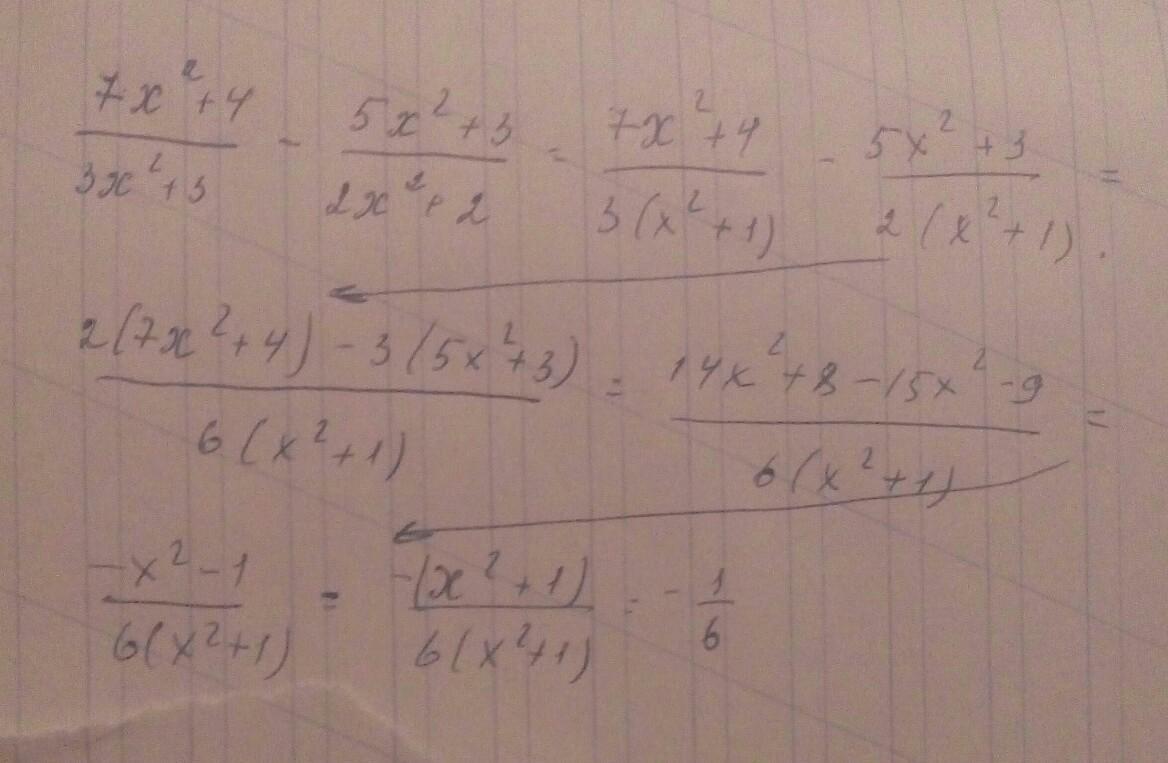 (7x²+4)/(3x²+3) - (5x²+3)/(2x²+2) = (7x²+4)/(3(x²+1)) - (5x²+3)/(2(x²+1)) =
(2(7x²+4) - 3(5x²+3))/(6(x²+1)) = (14x²+8-15x²-9)/(6(x²+1)) =
(-x²-1)/(6(x²+1)) = (-(x²+1))/(6(x²+1)) = -1/6